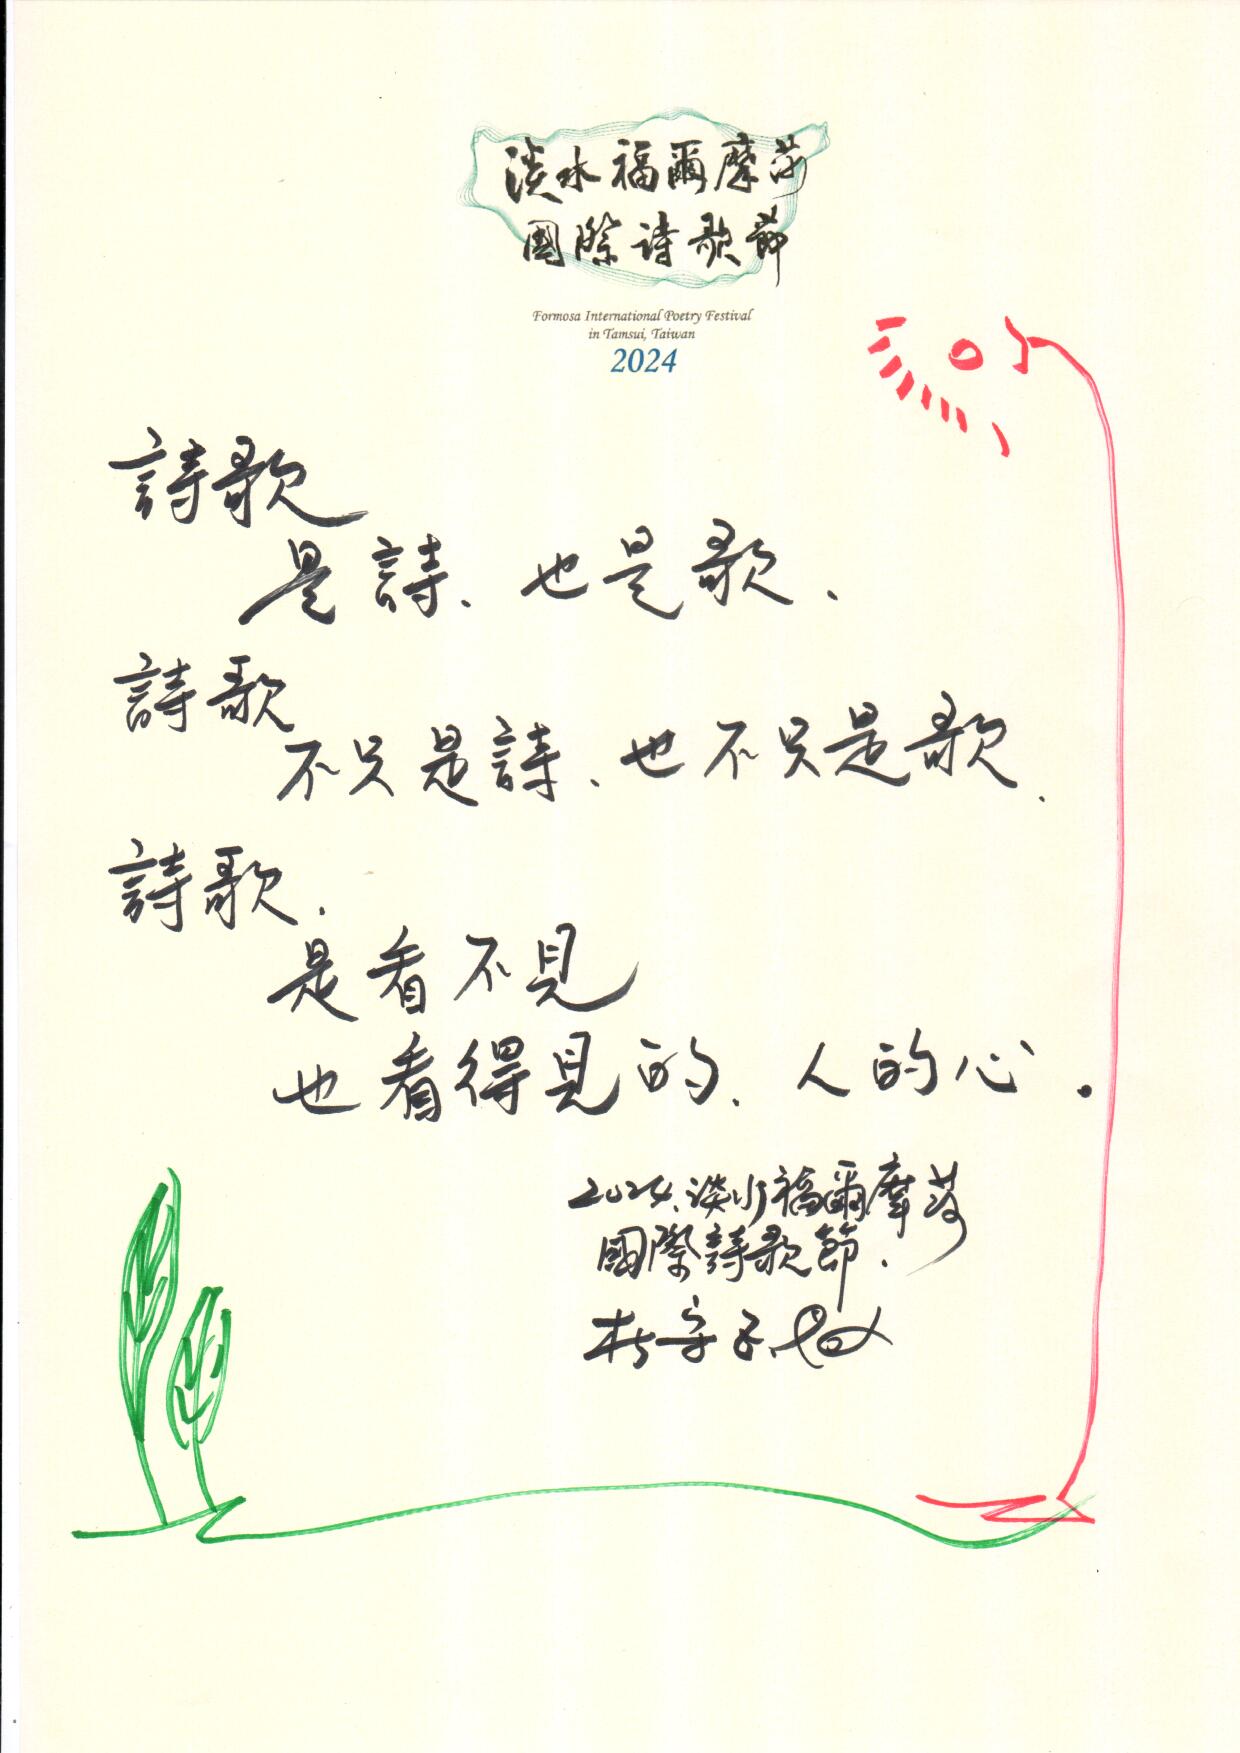 淡水福爾摩莎
國際詩歌節
Formosa International Poetry Festival
in Tamsui, Taiwan
2024
詩歌
是詩、也是歌.
詩歌
不只是詩、也不只是歌.
詩歌.
是看不見
也看得見的、人的心.
2024.淡水福爾摩莎
國際詩歌節.